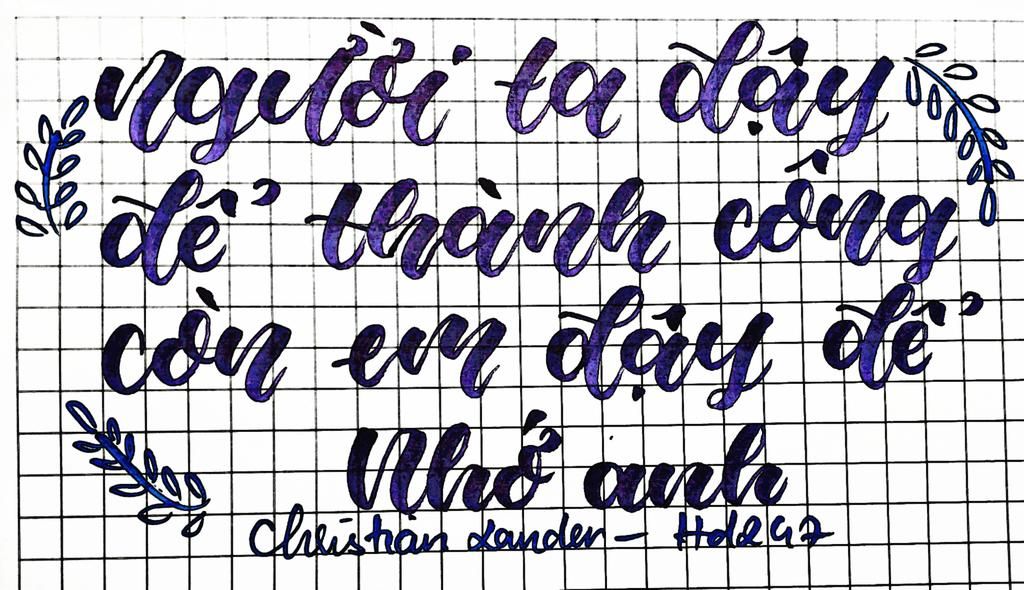 Người ta dậy
để thành công
còn em dậy để
Nhớ anh
Christian Lander - Hd2247